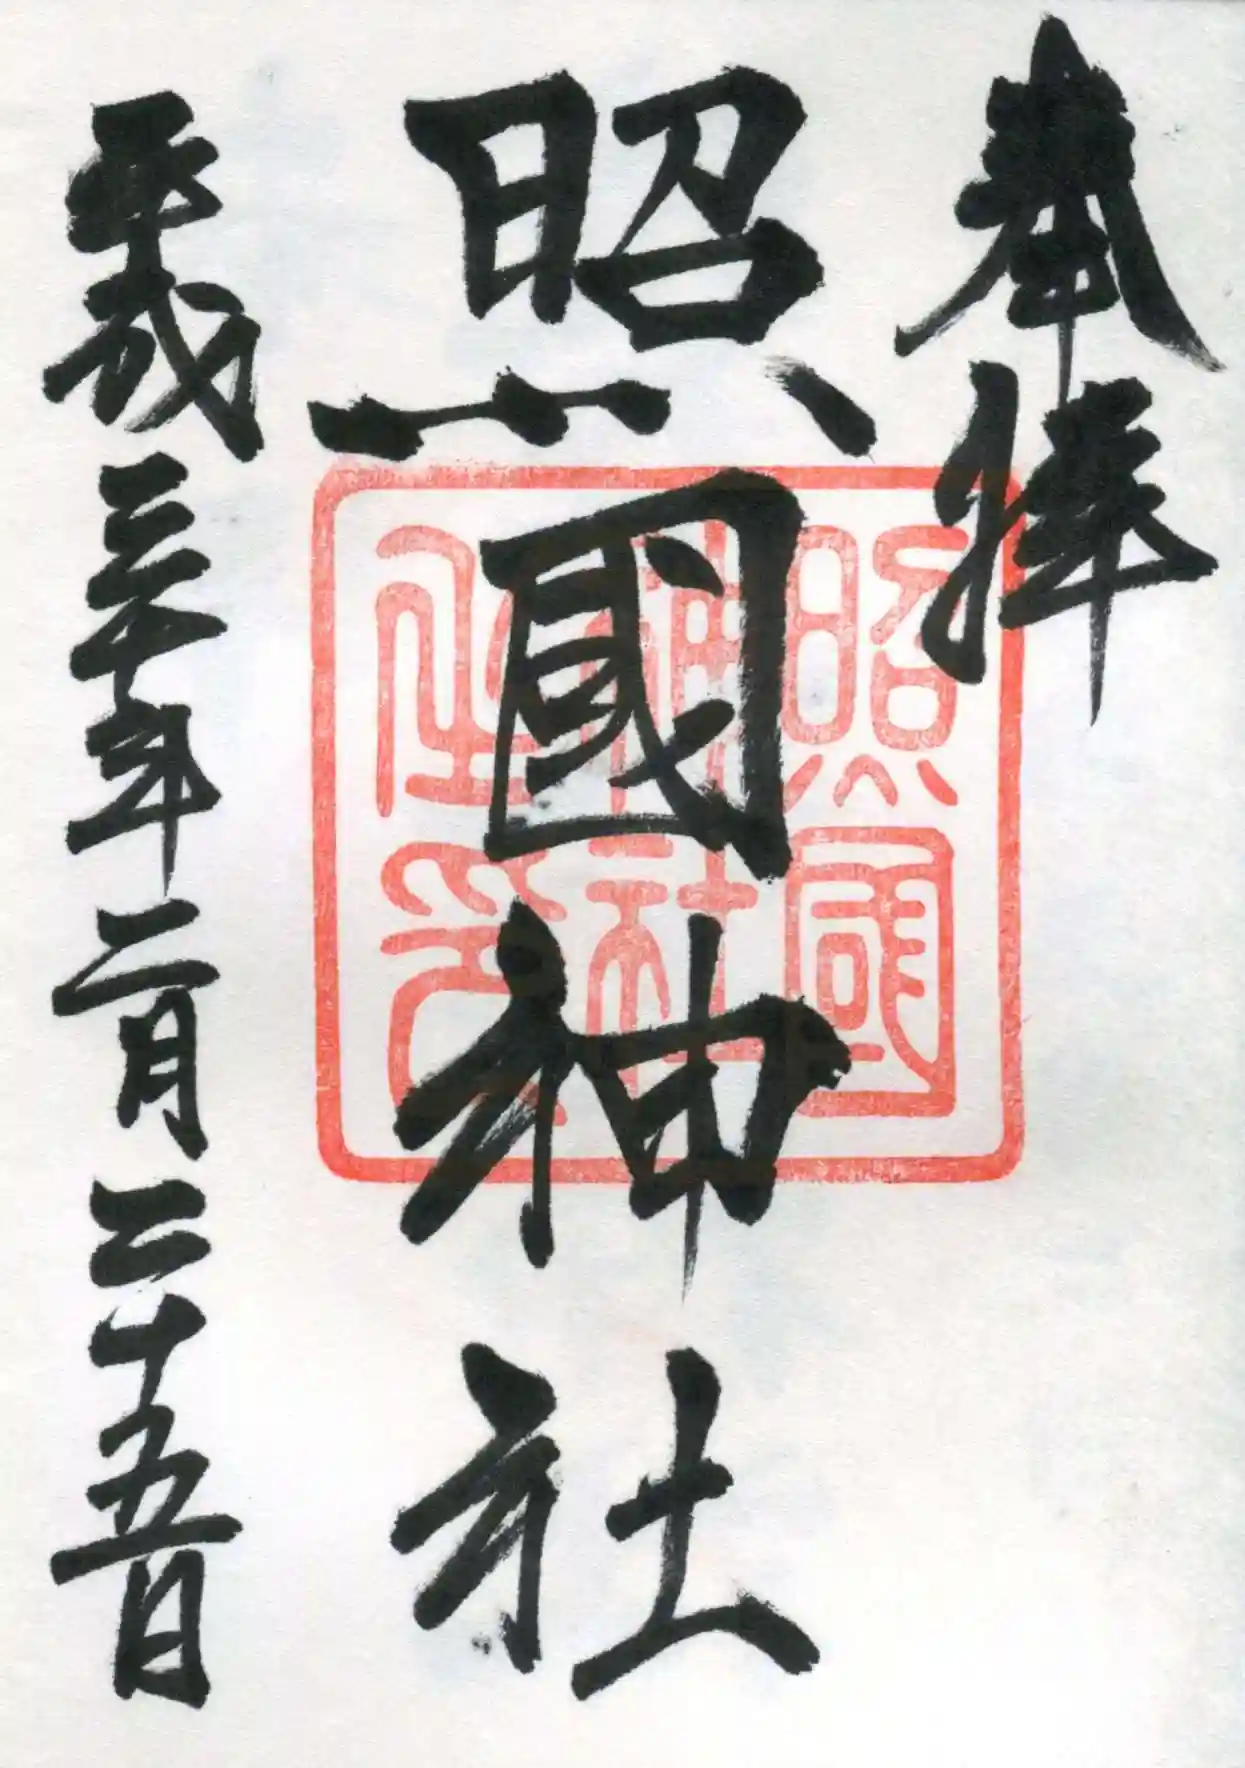 奉拝
照國神社
平成三十年二月二十五日
照國
神社
之印